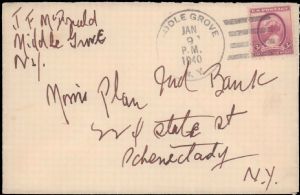 J F McDonald
Middle Grove
N.Y.
DDLE GROVE
JAN
9
P.M.
1940
N.Y.
U.S. POSTAGE
Morris Plan Ind Bank
State St
Schenectady
N.Y.